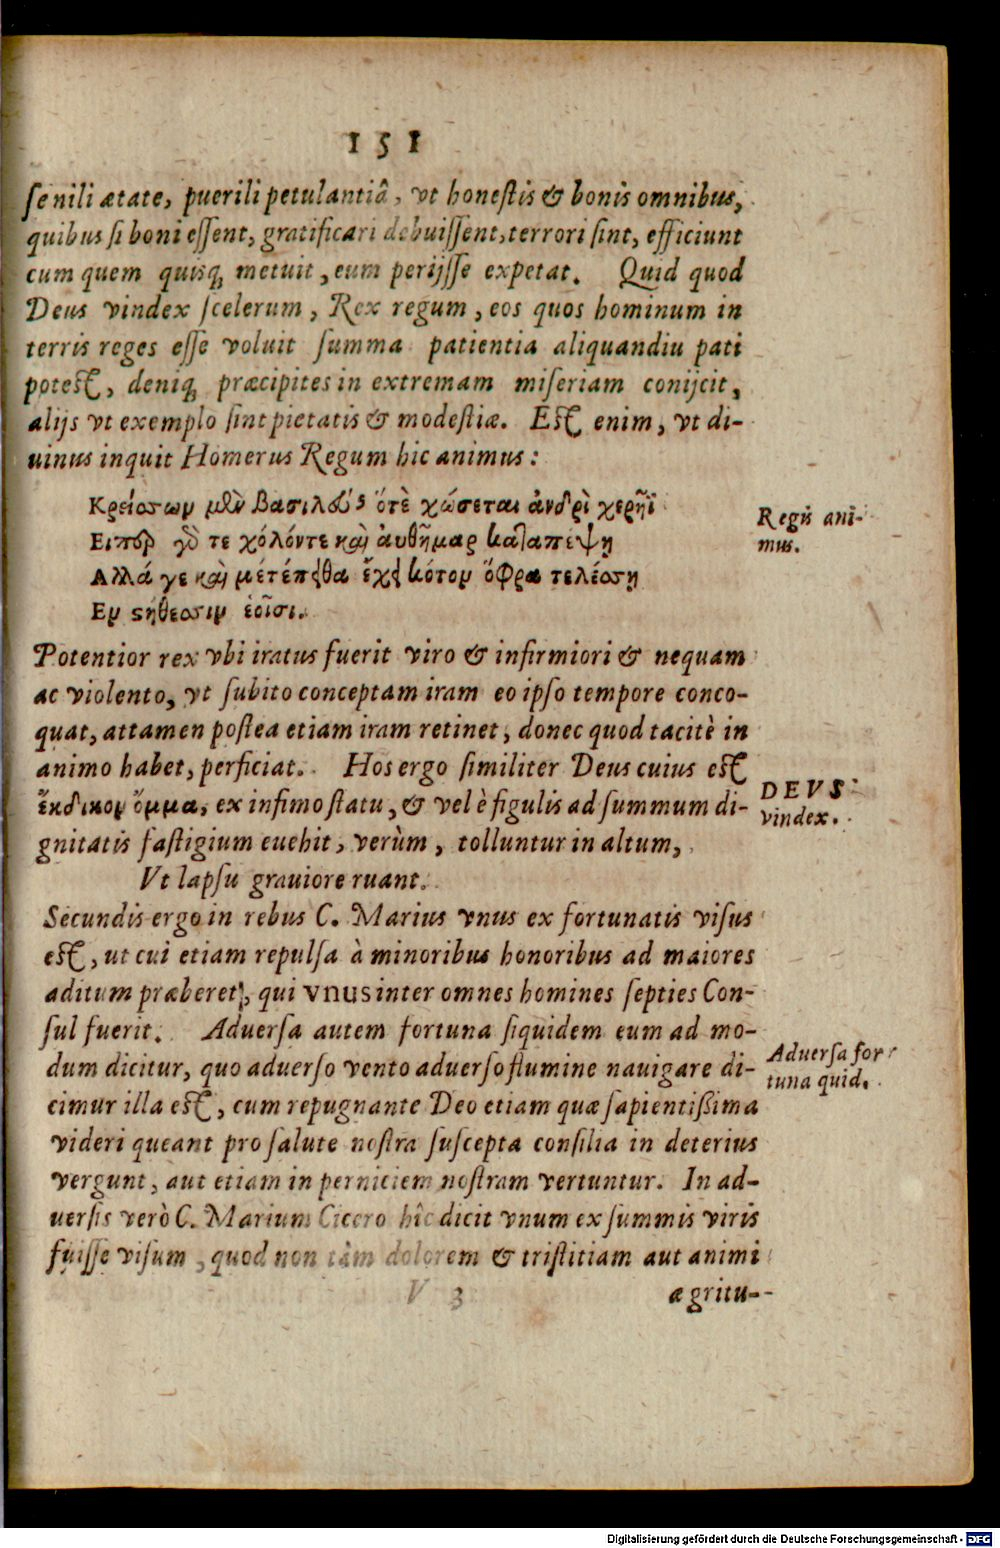 151
senili ætate, puerili petulantiâ, vt honestis & bonis omnibus,
quibus si boni essent, gratificari debuissent, terrori sint, efficiunt
cum quem quisq; metuit, eum perijsse expetat. Quid quod
Deus vindex scelerum, Rex regum, eos quos hominum in
terris reges esse voluit summa patientia aliquandiu pati
potest, deniq; præcipites in extremam miseriam conijcit,
alijs vt exemplo sint pietatis & modestiæ. Est enim, vt di-
uinus inquit Homerus Regum hic animus:
Κρείσσων μὲν βασιλεὺς ὅτὲ χώσεται ἀνδρὶ χερῆϊ
Regis ani-
mus.
Ειπερ γὸ τε χόλόντε καὶ ἀυθῆμαρ καταπέψη
Αλλά γε καὶ μετέπειθα ἔχει κότον ὄφρα τελέσση
Εν στήθεσσιν ἑοῖσι.
Potentior rex vbi iratus fuerit viro & infirmiori & nequam
ac violento, vt subito conceptam iram eo ipso tempore conco-
quat, attamen postea etiam iram retinet, donec quod tacitè in
animo habet, perficiat. Hos ergo similiter Deus cuius est
ἔκδικον ὄμμα, ex infimo statu, & vel è figulis ad summum di-
DEVS
vindex.
gnitatis fastigium euehit, verùm, tolluntur in altum,
Vt lapsu grauiore ruant.
Secundis ergo in rebus C. Marius vnus ex fortunatis visus
est, ut cui etiam repulsa à minoribus honoribus ad maiores
aditum præberet, qui vnus inter omnes homines septies Con-
sul fuerit. Aduersa autem fortuna siquidem eum ad mo-
dum dicitur, quo aduerso vento aduerso flumine nauigare di-
Aduersa for-
tuna quid.
cimur illa est, cum repugnante Deo etiam quæ sapientißima
videri queant pro salute nostra suscepta consilia in deterius
vergunt, aut etiam in perniciem nostram vertuntur. In ad-
uersis verò C. Marium Cicero hîc dicit vnum ex summis viris
fuisse visum, quod non tàm dolorem & tristitiam aut animi
V 3
ægritu-
Digitalisierung gefördert durch die Deutsche Forschungsgemeinschaft - DFG